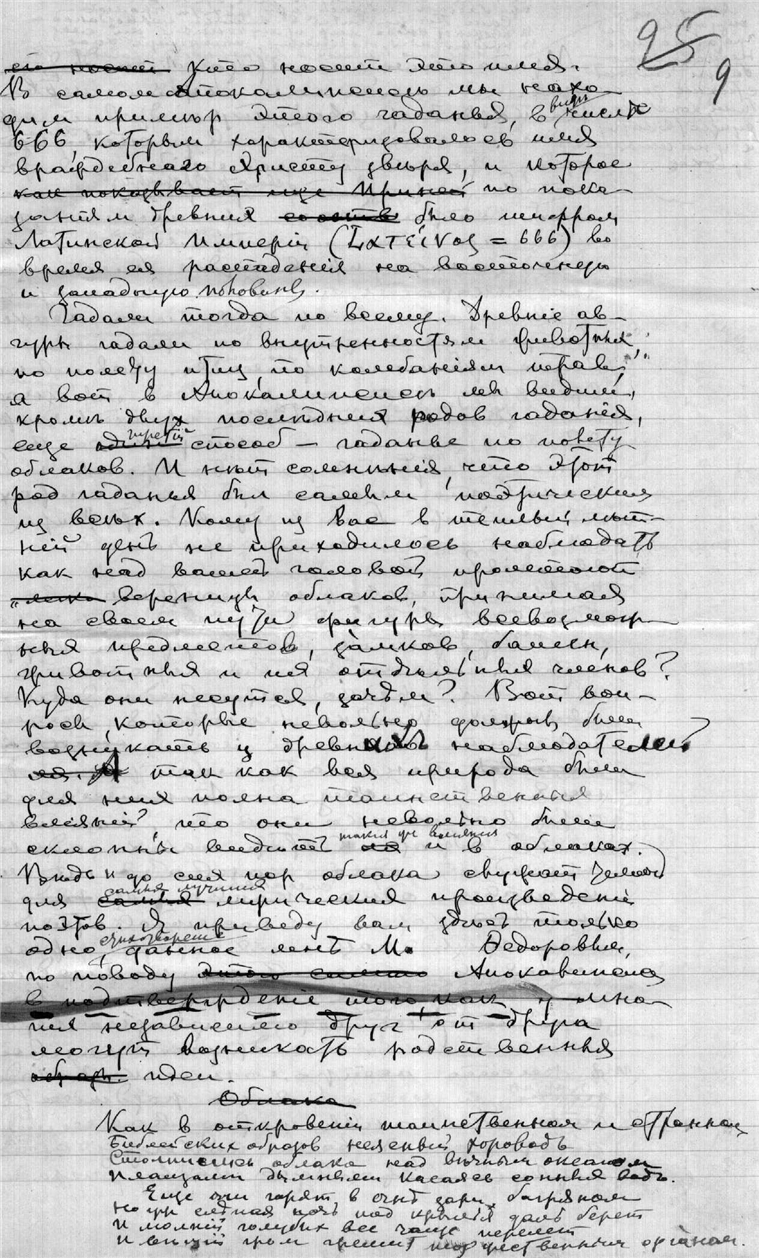 25
9
кто носит это имя.
В самом Апокалипсисе мы нахо-
дим пример этого гаданья, в виде числа
666, которым характеризовалось имя
враждебного Христу зверя, и которое
как показывает еще Ириней по пока-
заниям древних было шифром
Латинской Империи (Λατεῖνος = 666) во
время ея распадения на восточную
и западную половины.
Гадали тогда по всему. Древние ав-
гуры гадали по внутренностям животных,
по полету птиц, по колебаниям травы,
а вот в Апокалипсисе мы видим,
кроме двух последних родов гаданья,
еще третий способ — гаданье по полету
облаков. И нет сомнения, что этот
род гаданья был самым поэтическим
из всех. Кому из вас в теплый лет-
ний день не приходилось наблюдать
как над вашей головой пролетают
вереницы облаков, принимая
на своем пути фигуры всевозмож-
ных предметов, замков, башен,
животных и их отдельных членов?
Куда они несутся, зачем? Вот воп-
росы, которые невольно должны были
возникать у древних наблюдателей
А так как вся природа была
для них полна таинственных
влияний, что они невольно были
склонны видеть такие же влияния и в облаках.
Ведь и до сих пор облака служат темой
для самых лучших лирических произведений
поэтов. Я приведу вам здесь только
одно стихотворение, данное мне М. Федоровым,
по поводу Апокалипсиса
в подтверждение того как у мно-
гих независимо друг от друга
могут возникать родственные
идеи.
Облака
Как в откровении таинственном и странном
Библейских образов неясный хоровод
Столпились облака над вечным океаном
Плащами дымными касаясь сонных вод.
Еще они горят, в огне зари багряном
Но уж слепая ночь под крылья даль берет
И молний голубых все чаще перелет
И вещий гром гремит торжественным органом.